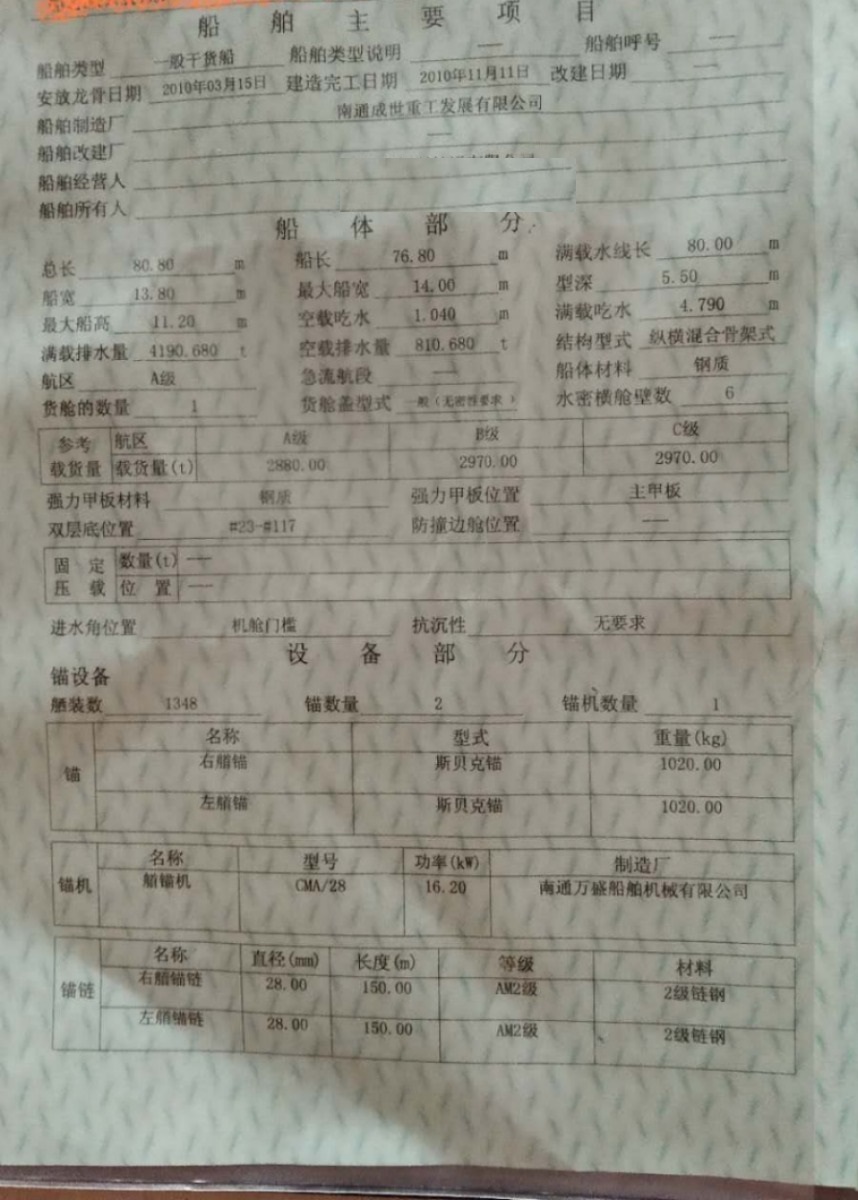 船舶主要项目
船舶类型 一般干货船 船舶类型说明 — 船舶呼号 —
安放龙骨日期 2010年03月15日 建造完工日期 2010年11月11日 改建日期 —
船舶制造厂 南通成世重工发展有限公司
船舶改建厂 —
船舶经营人
船舶所有人
船体部分
总长 80.80 m 船长 76.80 m 满载水线长 80.00 m
船宽 13.80 m 最大船宽 14.00 m 型深 5.50 m
最大船高 11.20 m 空载吃水 1.040 m 满载吃水 4.790 m
满载排水量 4190.680 t 空载排水量 810.680 t 结构型式 纵横混合骨架式
航区 A级 急流航段 — 船体材料 钢质
货舱的数量 1 货舱盖型式 一般(无密性要求) 水密横舱壁数 6
参考 航区 A级 B级 C级
载货量 载货量(t) 2880.00 2970.00 2970.00
强力甲板材料 钢质 强力甲板位置 主甲板
双层底位置 #23-#117 防撞边舱位置 —
固定 数量(t) —
压载 位置 —
进水角位置 机舱门槛 抗沉性 无要求
设备部分
锚设备
舾装数 1348 锚数量 2 锚机数量 1
锚 名称 型式 重量(kg)
右艏锚 斯贝克锚 1020.00
左艏锚 斯贝克锚 1020.00
锚机 名称 型号 功率(kW) 制造厂
艏锚机 CMA/28 16.20 南通万盛船舶机械有限公司
锚链 名称 直径(mm) 长度(m) 等级 材料
右艏锚链 28.00 150.00 AM2级 2级链钢
左艏锚链 28.00 150.00 AM2级 2级链钢